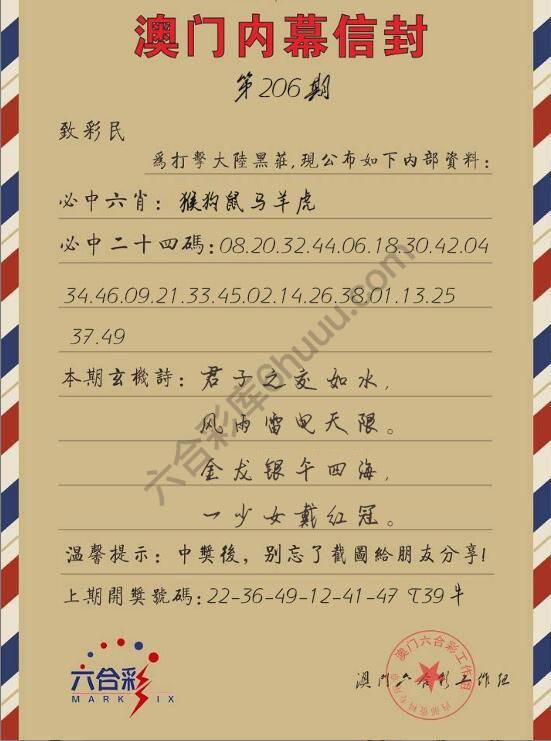 澳门内幕信封
第206期
致彩民
為打擊大陸黑莊,現公布如下內部資料:
必中六肖: 猴狗鼠马羊虎
必中二十四碼:08.20.32.44.06.18.30.42.04
34.46.09.21.33.45.02.14.26.38.01.13.25
37.49
本期玄機詩: 君子之交如水,
风雨雷电天限。
金龙银午四海,
一少女戴红冠。
温馨提示: 中獎後, 别忘了截圖給朋友分享!
上期開獎號碼:22-36-49-12-41-47 T39牛
六合彩库@huuu.com
六合彩
MARK SIX
澳门六合彩工作组
澳门六合彩工作组